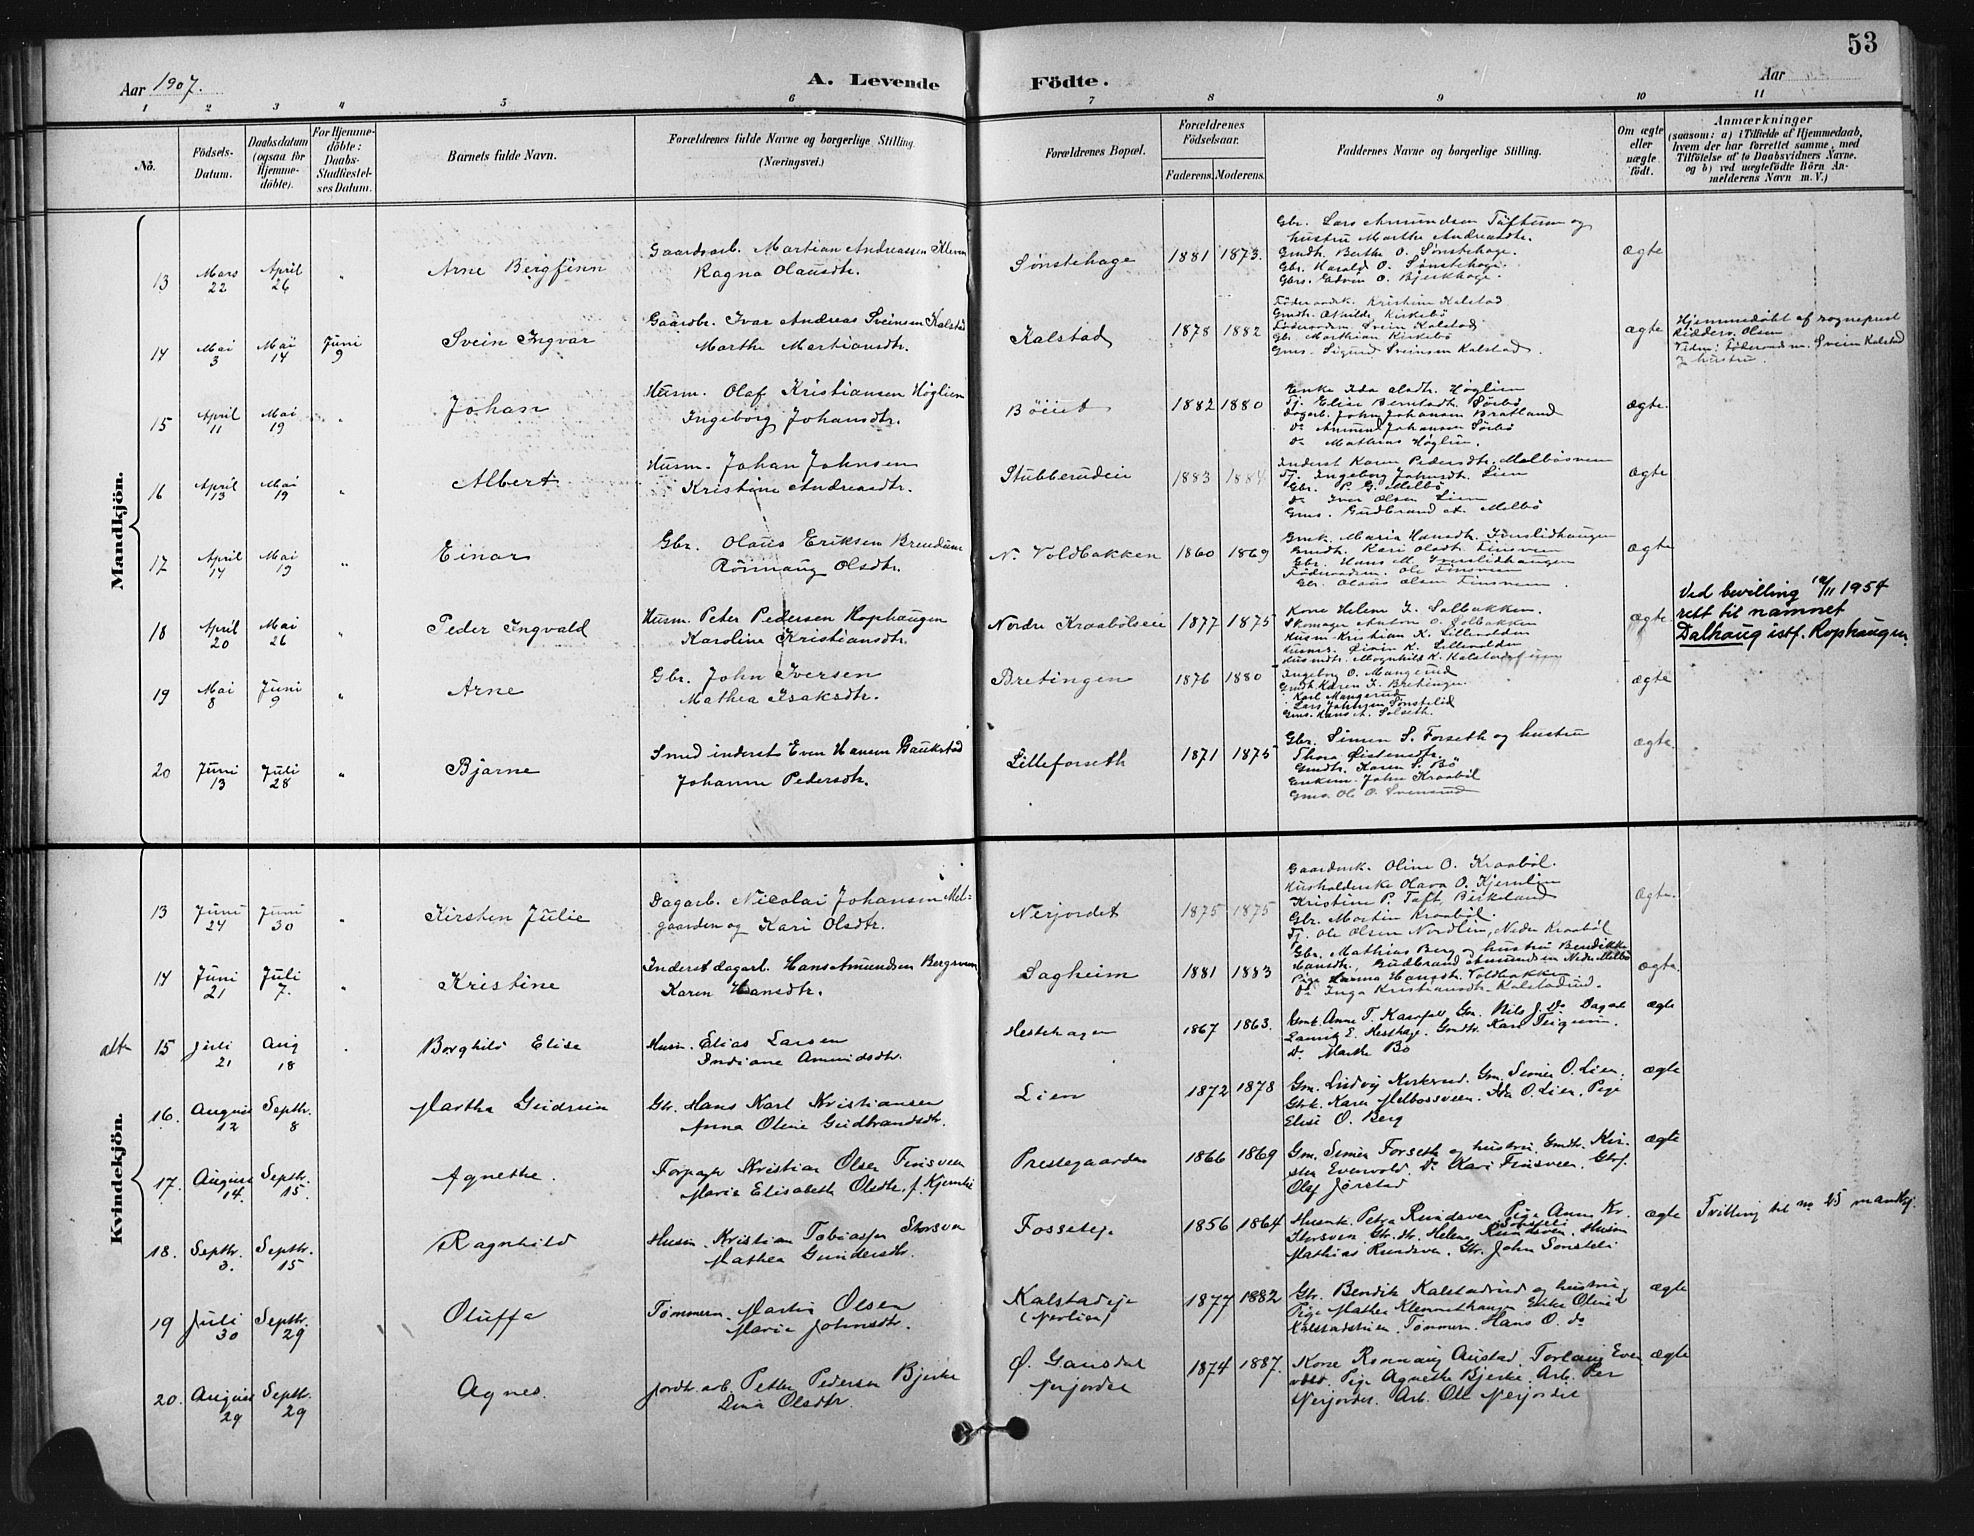 53
Aar 1907.
A. Levende Födte.
Aar
1 2 3 4 5 6 7 8 9 10 11
No.
Födsels-Datum.
Daabsdatum (ogsaa for Hjemme-döbte).
For Hjemme-döbte: Daabs-Stadfæstel-ses Datum.
Barnets fulde Navn.
Forældrenes fulde Navne og borgerlige Stilling.
(Næringsvei.)
Forældrenes Bopæl.
Forældrenes Födselsaar.
Faderens. Moderens.
Faddernes Navne og borgerlige Stilling.
Om ægte eller uægte födt.
Anmærkninger
(saasom: a) i Tilfælde af Hjemmedaab,
hvem der har forrettet samme, med
Tilföielse af to Daabsvidners Navne.
og b) ved uægtefödte Börn An-
melderens Navn m. V.)
Mandkjön.
13 Mars 22 April 26 " Arne Bergfinn
Gaardsarb. Martian Andreassen Klevn
Ragna Olausdtr.
Sønstehage 1881 1873.
Gbr. Lars Amundsen Töftum og
hustru Marthe Andreasdtr.
Gmdtr. Berthe O. Sønstehage.
Gbr. Harald O. Sønstehage.
Gbrs. Edvin O. Bjerkhage.
ægte
14 Mai 3 Mai 14 Juni 9 Svein Ingvar
Gaardbr. Ivar Andreas Sveinsen Kalstad
Marthe Martiansdtr.
Kalstad 1878 1882
Föderaadsk. Kristine Kalstad
Gmdtr. Mathilde Kirkebö
Föderaadsm. Svein Kalstad
Gbr. Mathias Kirkebö
Gms. Sigurd Sveinsen Kalstad.
ægte
Hjemmedöbt af sogneprest
Ridderv. Olsen
Vidn: Föderaadsm. Svein Kalstad
& hustru.
15 April 11 Mai 19 " Johan
Husm. Olaf Kristiansen Höglien
Ingeborg Johansdtr.
Böiiet 1882 1880
Enke Ida Olsdtr. Höglien
Tj. Elise Berntsdtr. Sörbö
Dagarb. John Johansen Bratland
Do Amund Johansen Sörbö
Do Mathias Höglien.
ægte.
16 April 13 Mai 19 " Albert
Husm. Johan Johnsen
Kristine Andreasdtr.
Stubberudeie 1883 1884
Inderst Karen Pedersdtr. Melbösveen
Tj. Ingeborg Johnsdtr. Lien
Gbr. P. G. Melbö
Do Iver Olsen Lien
Gms. Gudbrand A. Melbö
ægte
17 April 14 Mai 19 " Einar
Gbr. Olaus Eriksen Brendum
Rönnaug Olsdtr.
N. Voldbakken 1860 1869
Gmk. Maria Hansdtr. Finslidhaugen
Gmdtr. Kari Olsdtr. Finsveen
Gbr. Hans M. Finslidhaugen
Föderaadsm. Ole Finsveen
Gbr. Olaus Olsen Finsveen
ægte
18 April 20 Mai 26 " Peder Ingvald
Husm. Peter Pedersen Rophaugen
Karoline Kristiansdtr.
Nordre Kraabölseie 1877 1875
Kone Helene I. Solbakken.
Skomager Anton O. Solbakken
Husm. Kristian K. Lillevolden
Husmss. Øivin K. Lillevolden
Husmdtr. Magnhild K. Kalstad
ægte
Ved bevilling 12/11 1954
rett til namnet
Dalhaug istf. Rophaugen.
19 Mai 8 Juni 9 " Arne
Gbr. John Iversen
Mathea Isaksdtr.
Bretingen 1876 1880
Ingeborg O. Mangerud
Gmdt. Karen I. Bretingen
Karl Mangerud
Lars Johnsen Sønstelid
Gms. Hans A. Solseth.
ægte
20 Juni 13 Juli 28 " Bjarne
Smed inderst Even Hansen Baukstad
Johanne Pedersdtr.
Lilleforseth 1871 1875
Gbr. Simen S. Forseth og hustru
Thora Øistensdtr.
Gmdtr. Karen S. Bö
Enkem. John Kraaböl
Gms. Ole O. Svensrud
ægte.
Kvindekjön.
13 Juni 24 Juni 30 " Kirsten Julie
Dagarb. Nicolai Johansen Mel-
gaarden og Kari Olsdtr.
Nerjordet 1875 1875
Gaardmk. Oline O. Kraaböl.
Husholderske Olava O. Kjernlien
Kristine P. Toft, Birkeland
Gbr. Martin Kraaböl.
Tj. Ole Olsen Nordlien, Nedre Kraaböl
ægte.
14 Juni 21 Juli 7. " Kristine
Inderst dagarb. Hans Amundsen Bergsveen
Karen Hansdtr.
Sagheim 1881 1883
Gbr. Mathias Berg og hustru Bendikke
Hansdtr., Gudbrand Amundsen Nedre Melbö
Pige Hansdtr. Voldbakken
Do Inga Kristiansdtr. Kalstadrud.
ægte.
alt 15 Juli 21 Aug 18 . Borghild Elise
Husm. Elias Larsen
Indiane Amundsdtr.
Hestehagen 1867 1863.
Gmk. Anne T. Gm. Nils J. Do Dagarb.
Lauritz E. Hesthage. Gmdtr. Kari Teigum.
Do. Marthe Bö
ægte
16. August 12 Septbr. 8 Martha Gudrun
Gbr. Hans Karl Kristiansen
Anna Oline Gudbrandsdtr.
Lien 1872 1878
Gm. Ludvig Kirkerud. Gm. Simen O. Lien.
Gbrk. Karen Melbösveen. Ida O. Lien. Pige
Elise O. Berg
ægte
17. August 14. Septbr. 15. Agnethe.
Forpagter Kristian Olsen Finsveen
Marie Elisabeth Olsdtr. f. Kjernlie
Prestegaarden 1866 1869
Gm. Simen Forseth og hustru. Gmdtr. Kir-
sten Evenvold. Do Kari Finsveen. Gbrf.
Olaf Jörstad
ægte
18. Septbr. 3. Septbr. 15 Ragnhild
Husm. Kristian Tobiassen Storsveen
Mathea Gundersdtr.
Fosseteje 1856 1864
Husmk. Petra Rundsveen. Pige Anne Kr.
Storsveen. Gbr.dtr. Helene Sönsteli Rundsveen. Husm
Mathias Rundsveen. Gbr. John Sönsteli
ægte
Tvilling til no 25 mandkj.
19 Juli 30 Septbr. 29 Oluffa
Tømmerm. Martin Olsen
Maria Johnsdtr.
Kalstadeje (Nerlien) 1877 1882
Gbr. Bendik Kalstadrud og hustru,
Pige Mathea Klemmethaugen Enke Oline
Kalstadstuen. Tømmerm. Hans O. do
ægte
20. August 29 Septbr. 29 Agnes.
Jordbr. arb. Petter Pedersen Bjerke
Lina Olsdtr.
Ø. Gausdal Nerjordet 1874 1887.
Kone Rønnaug Austad. Torlaug Even-
vold. Pige Agnethe Bjerke. Arb. Per
Nerjordet. Arb. Ole Nerjordet
ægte